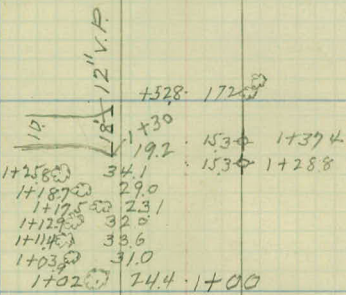 18"-12" V.P.
+52.8 · 17.2
10.
1+30
15.3 1+37.4
19.2
15.3 1+28.8
1+25.8 34.1
1+18.7 29.0
1+17.5 23.1
1+12.9 32.8
1+11.4 33.6
1+03.9 31.0
1+02 24.4 · 1+00